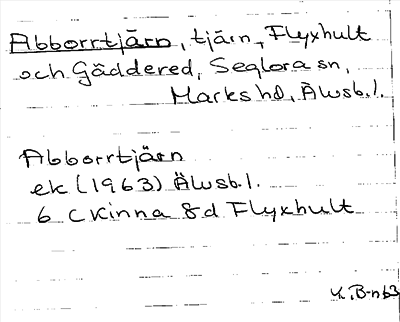 Abborrtjärn, tjärn, Flyxhult
och Gäddered, Seglora sn,
Marks hd, Älvsb.l.
Abborrtjärn
ek (1963) Älvsb.l.
6 C Kinna 8d Flyxhult
K.B-n 63